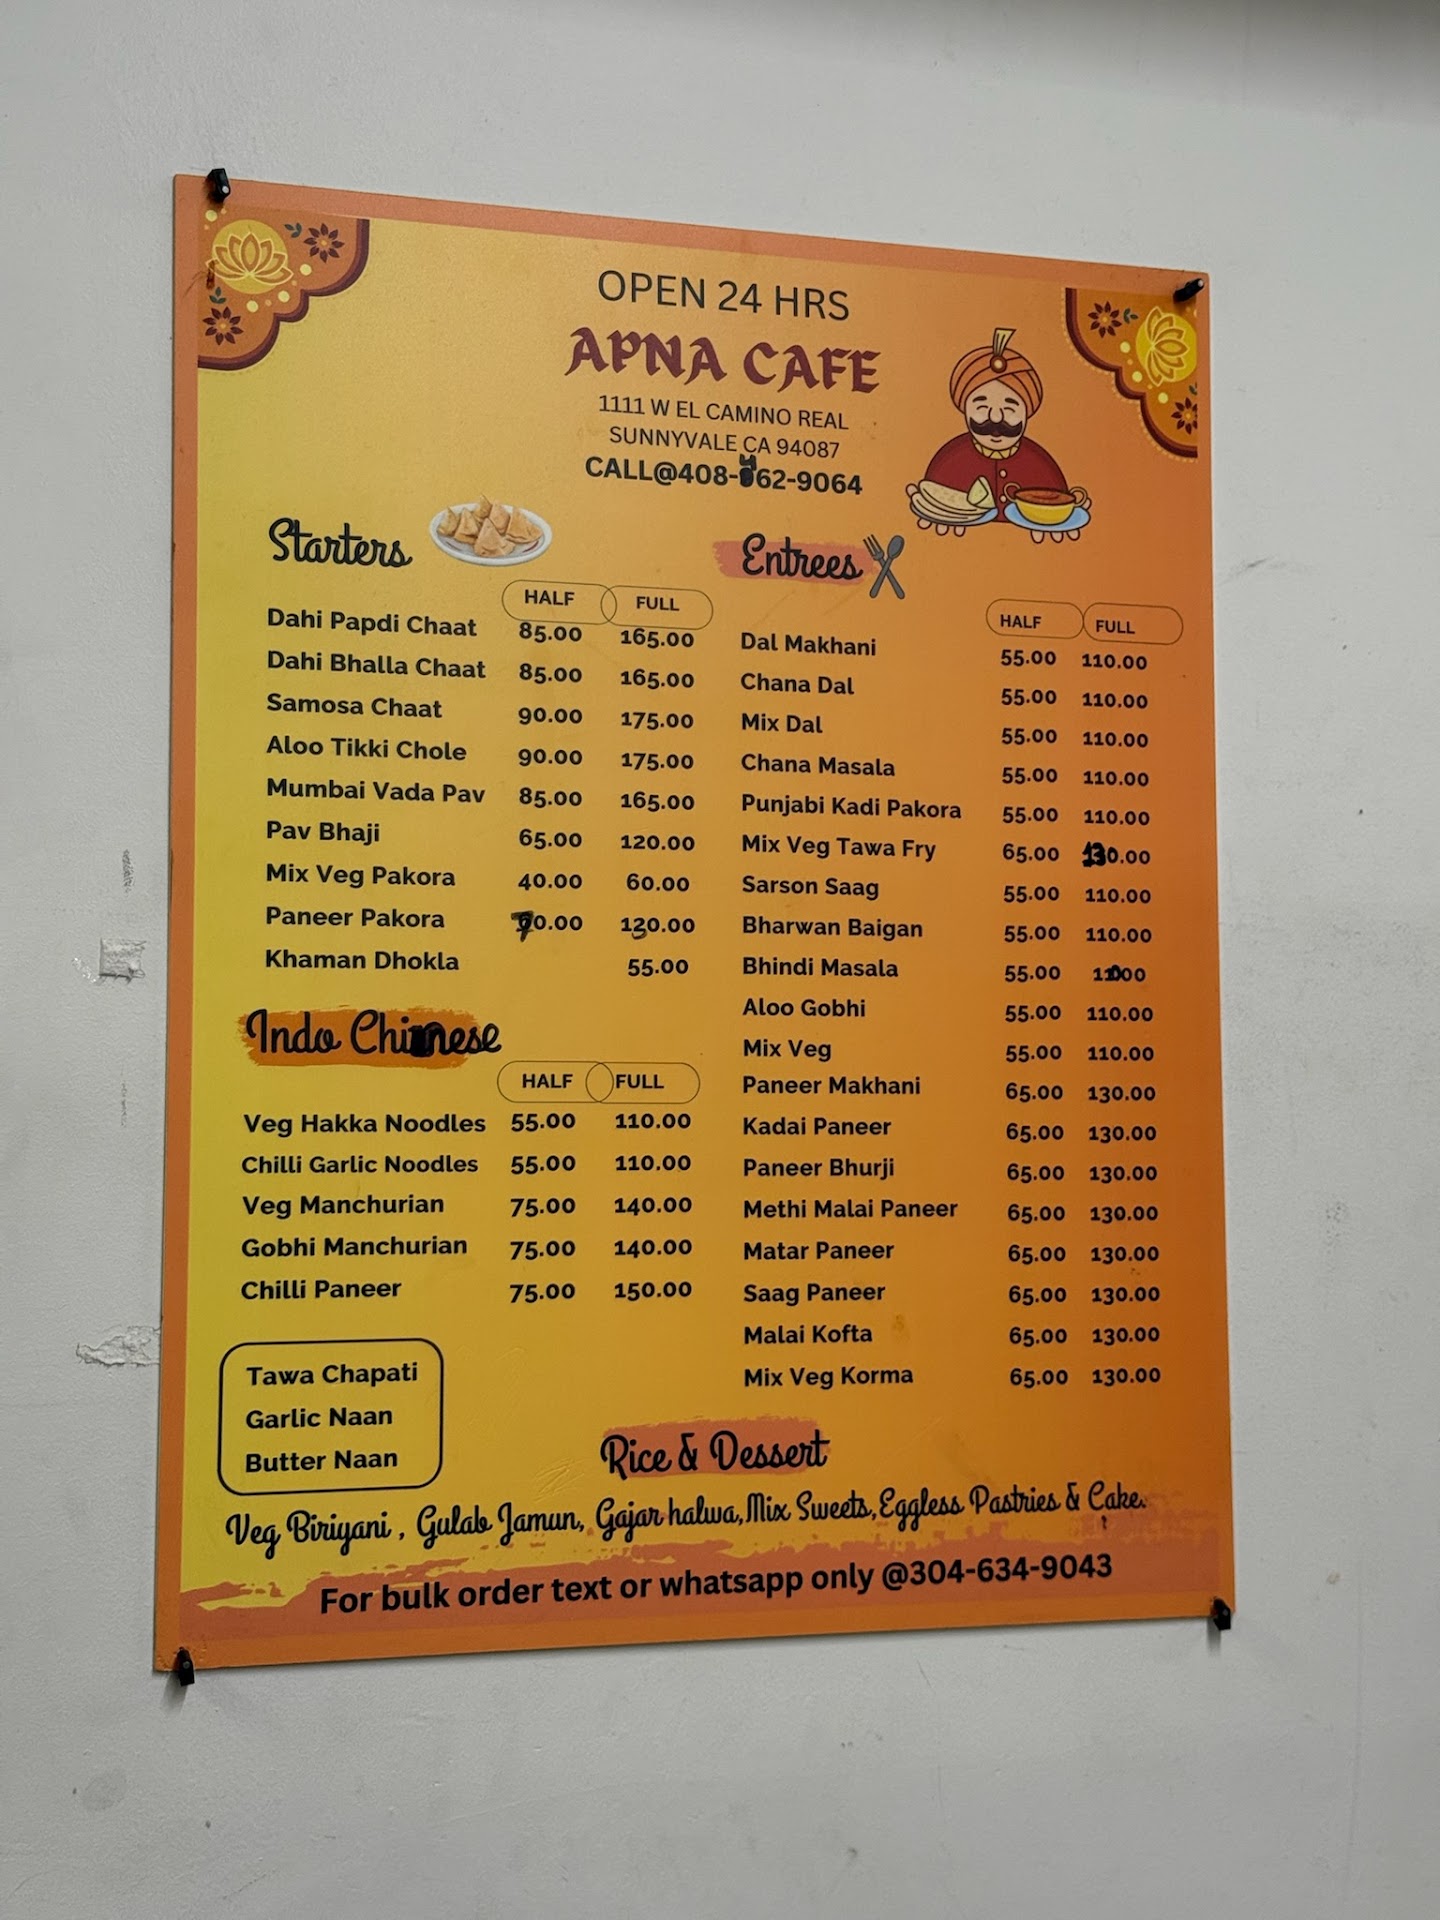 OPEN 24 HRS
APNA CAFE
1111 W EL CAMINO REAL
SUNNYVALE CA 94087
CALL@408- 62-9064
Starters
HALF FULL
Dahi Papdi Chaat 85.00 165.00
Dahi Bhalla Chaat 85.00 165.00
Samosa Chaat 90.00 175.00
Aloo Tikki Chole 90.00 175.00
Mumbai Vada Pav 85.00 165.00
Pav Bhaji 65.00 120.00
Mix Veg Pakora 40.00 60.00
Paneer Pakora 70.00
Khaman Dhokla 55.00
Indo Chinese
HALF FULL
Veg Hakka Noodles 55.00 110.00
Chilli Garlic Noodles 55.00 110.00
Veg Manchurian 75.00 140.00
Gobhi Manchurian 75.00 140.00
Chilli Paneer 75.00 150.00
Tawa Chapati
Garlic Naan
Butter Naan
Entrees
HALF FULL
Dal Makhani 55.00 110.00
Chana Dal 55.00 110.00
Mix Dal 55.00 110.00
Chana Masala 55.00 110.00
Punjabi Kadi Pakora 55.00 110.00
Mix Veg Tawa Fry 65.00 130.00
Sarson Saag 55.00 110.00
Bharwan Baigan 55.00 110.00
Bhindi Masala 55.00
Aloo Gobhi 55.00 110.00
Mix Veg 55.00 110.00
Paneer Makhani 65.00 130.00
Kadai Paneer 65.00 130.00
Paneer Bhurji 65.00 130.00
Methi Malai Paneer 65.00 130.00
Matar Paneer 65.00 130.00
Saag Paneer 65.00 130.00
Malai Kofta 65.00 130.00
Mix Veg Korma 65.00 130.00
Rice & Dessert
Veg Biriyani , Gulab Jamun, Gajar halwa,Mix Sweets,Eggless Pastries & Cake.
For bulk order text or whatsapp only @304-634-9043